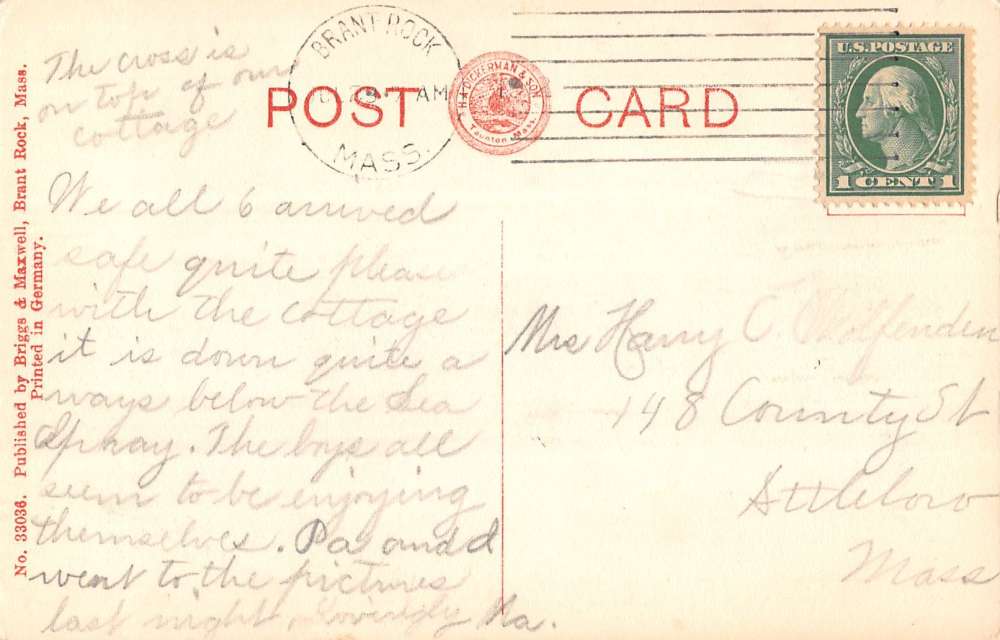 The cross is
on top of our
cottage
We all 6 arrived
safe quite please
with the cottage
it is down quite a
ways below the Sea
Spray. The boys all
seem to be enjoying
themselves. Pa and I
went to the pictures
last night, Lovingly Ma.
BRANT ROCK
AM
MASS.
POST CARD
& SON
Taunton, Mass.
U.S. POSTAGE
1 CENT 1
Mrs Harry C. Wolfenden
148 County St
Attleboro
Mass
No. 33036. Published by Briggs & Maxwell, Brant Rock, Mass.
Printed in Germany.